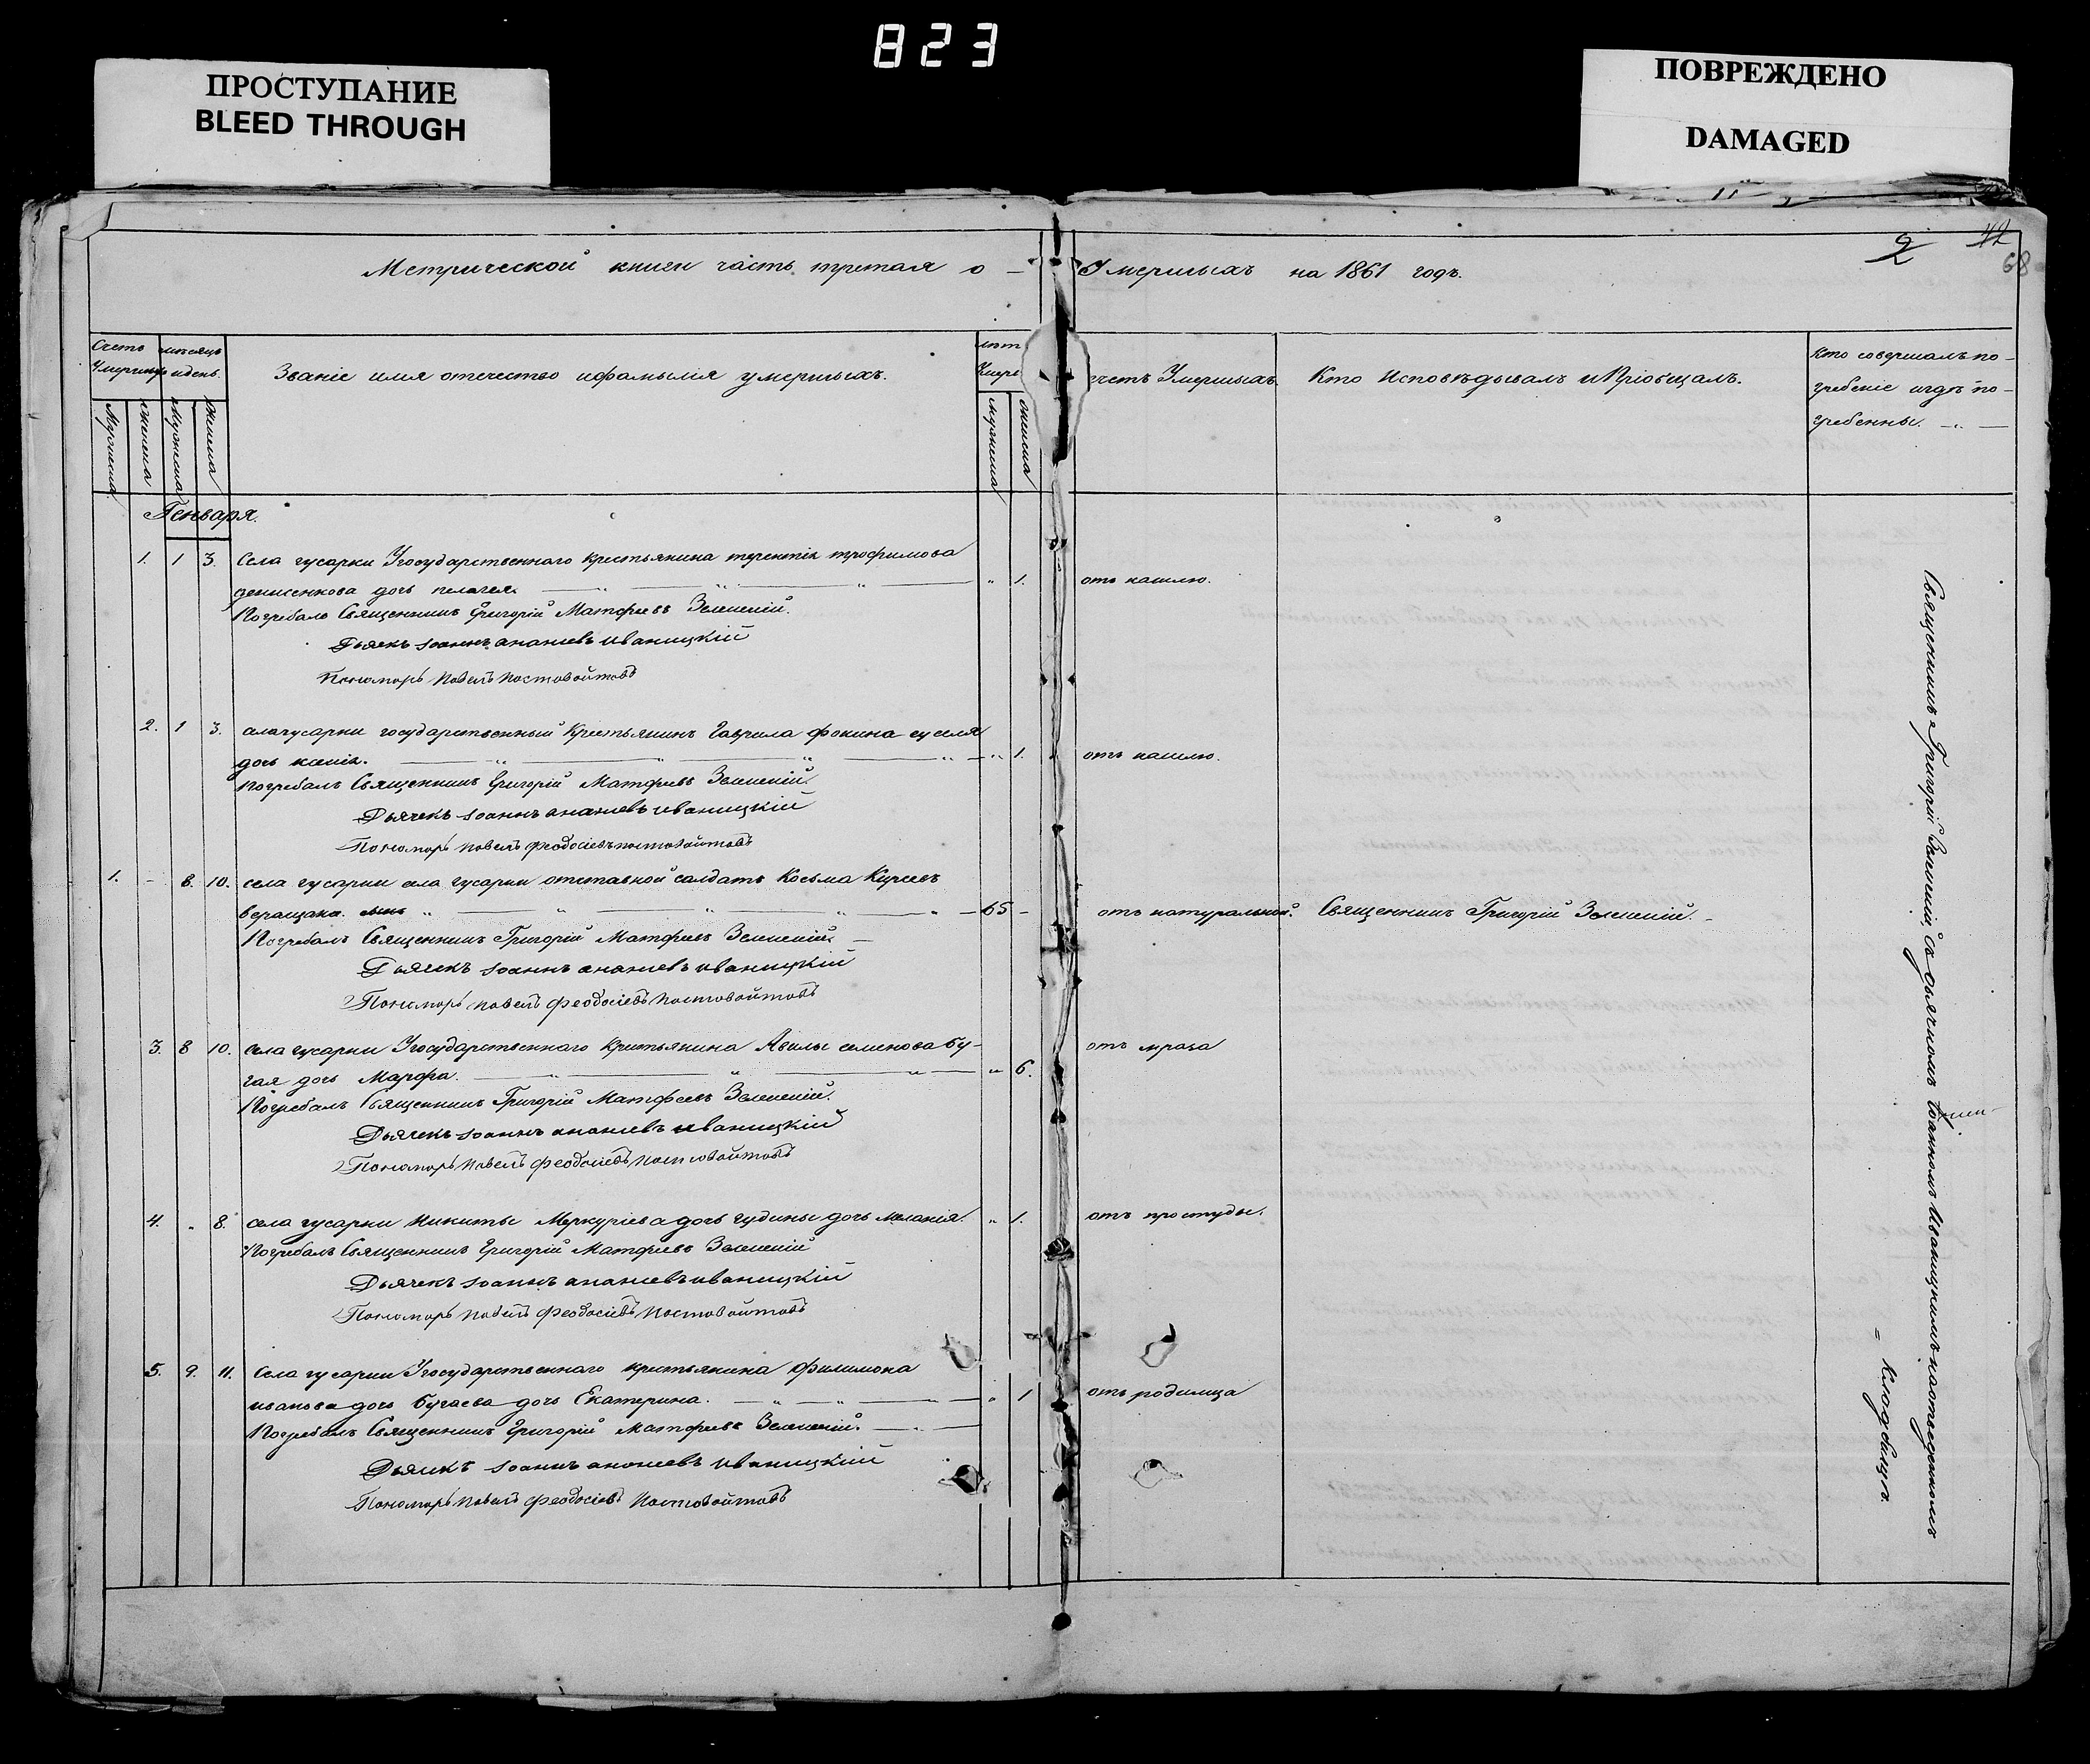 823
ПРОСТУПАНИЕ
BLEED THROUGH
ПОВРЕЖДЕНО
DAMAGED
68
Метрической книги часть третая о
Умершыхъ на 1861 годъ.
Счетъ
месяцъ
и день
Званіе имя отечество ифамылія умершыхъ.
лѣт
Умершыхъ.
Кто Исповѣдывалъ иПріобщалъ.
Кто совершалъ по-
гребеніе игдѣ по-
гребенны.
Генваря.
1. 1 3. Села гусарки Угосударственнаго крестьянина терентія трофимова
денисенкова дочь пелагея. 1. отъ кашлю.
Погребалъ Священникъ Григорій Матфеевъ Зеленскій.
Дьячекъ Іоаннъ ананіевъ иваницкій
Пономарь Павелъ Постовойтовъ
2. 1 3. государственный Крестьянинъ Гаврила фокина
дочь ксенія. 1. отъ кашлю.
Погребалъ Священникъ Григорій Матфеевъ Зеленскій
Дьячекъ Іоаннъ ананіевъ иваницкій
Пономарь Павелъ феодосіевъ постовойтовъ
1. - 8. 10. села гусарки села гусарки отставной салдатъ Косьма Киреевъ
веращака. 65 - отъ натуральной. Священникъ Григорій Зеленскій.
Погребалъ Священникъ Григорій Матфеевъ Зеленскій
Дьячекъ Іоаннъ ананіевъ иваницкій
Пономарь Павелъ феодосіевъ Постовойтовъ
3. 8 10. Села гусарки Угосударственнаго Крестьянина Авилы семенова бу-
гая дочь Марфа. 6. отъ мраза
Погребалъ Священникъ Григорій Матфеевъ Зеленскій.
Дьячекъ Іоаннъ ананіевъ иваницкій
Пономарь Павелъ феодосіевъ Постовойтовъ
4. 8. села гусарки Никиты Меркуріева дочь гудины дочь Меланія. 1. отъ простуды.
Погребалъ Священникъ Григорій Матфеевъ Зеленскій
Дьячекъ Іоаннъ ананіевъ иваницкій
Пономарь Павелъ феодосіевъ Постовойтовъ
5. 9. 11. Села гусарки Угосударственнаго крестьянина филимона
иванова дочь Бугаева дочь Екатерина. 1 отъ родимца
Погребалъ Священникъ Григорій Матфеевъ Зеленскій.
Дьячекъ Іоаннъ ананіевъ иваницкій
Пономарь Павелъ феодосіевъ Постовойтовъ
Священникъ Григорій Зеленскій, съ дьячкомъ Іоанномъ Иваницкимъ
Кладбищѣ.